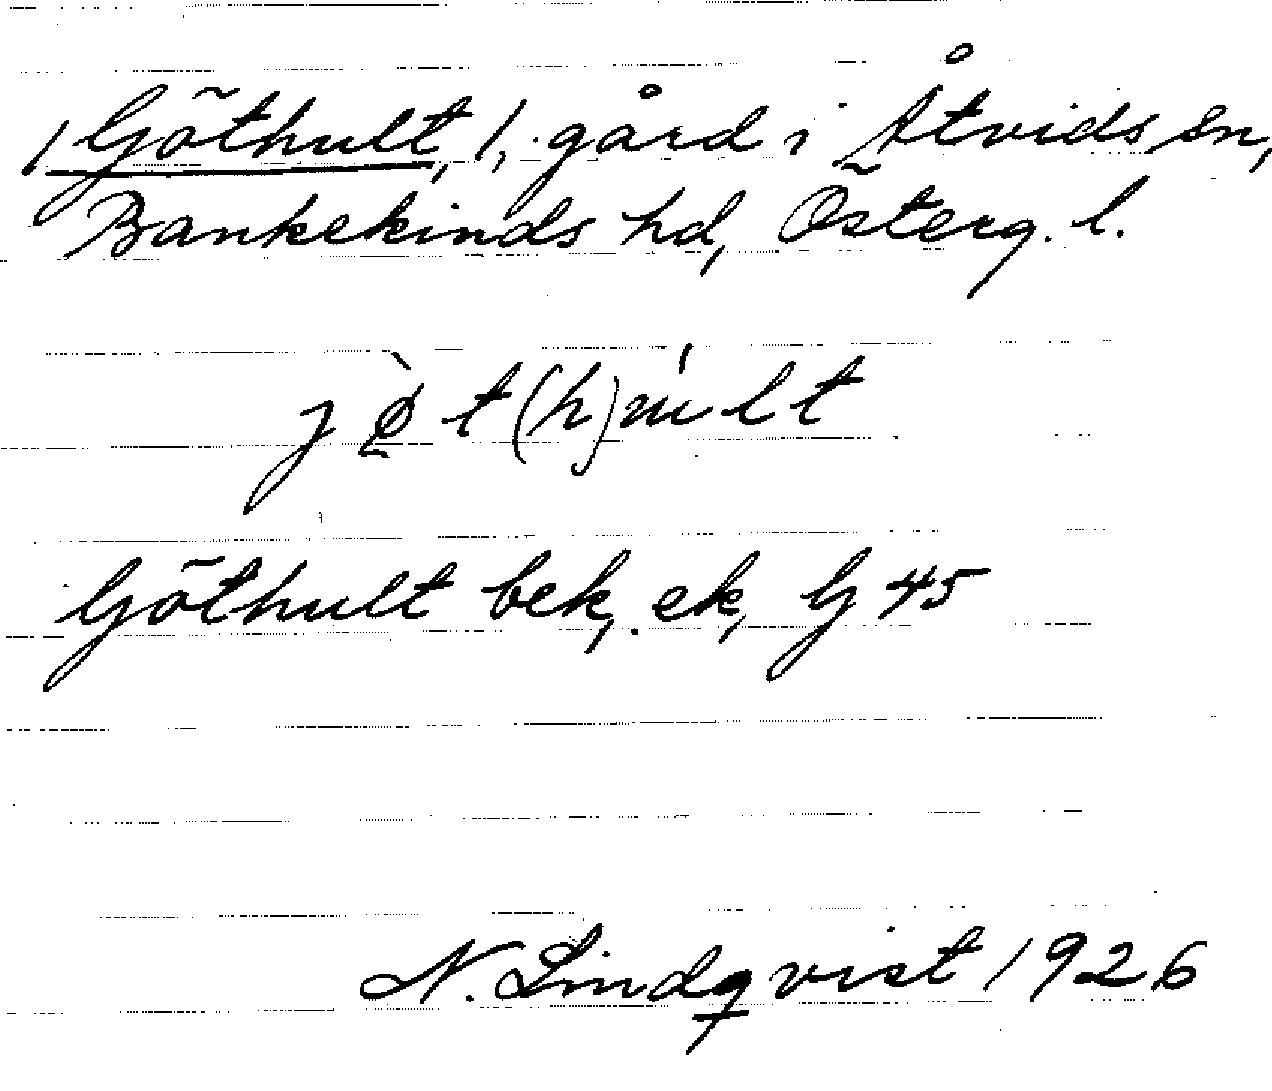 / Göthult, 1, gård i Åtvids sn,
Bankekinds hd, Österg. l.
jø̀t(h)ult
Göthult bek, ek, G 45
N. Lindqvist 1926